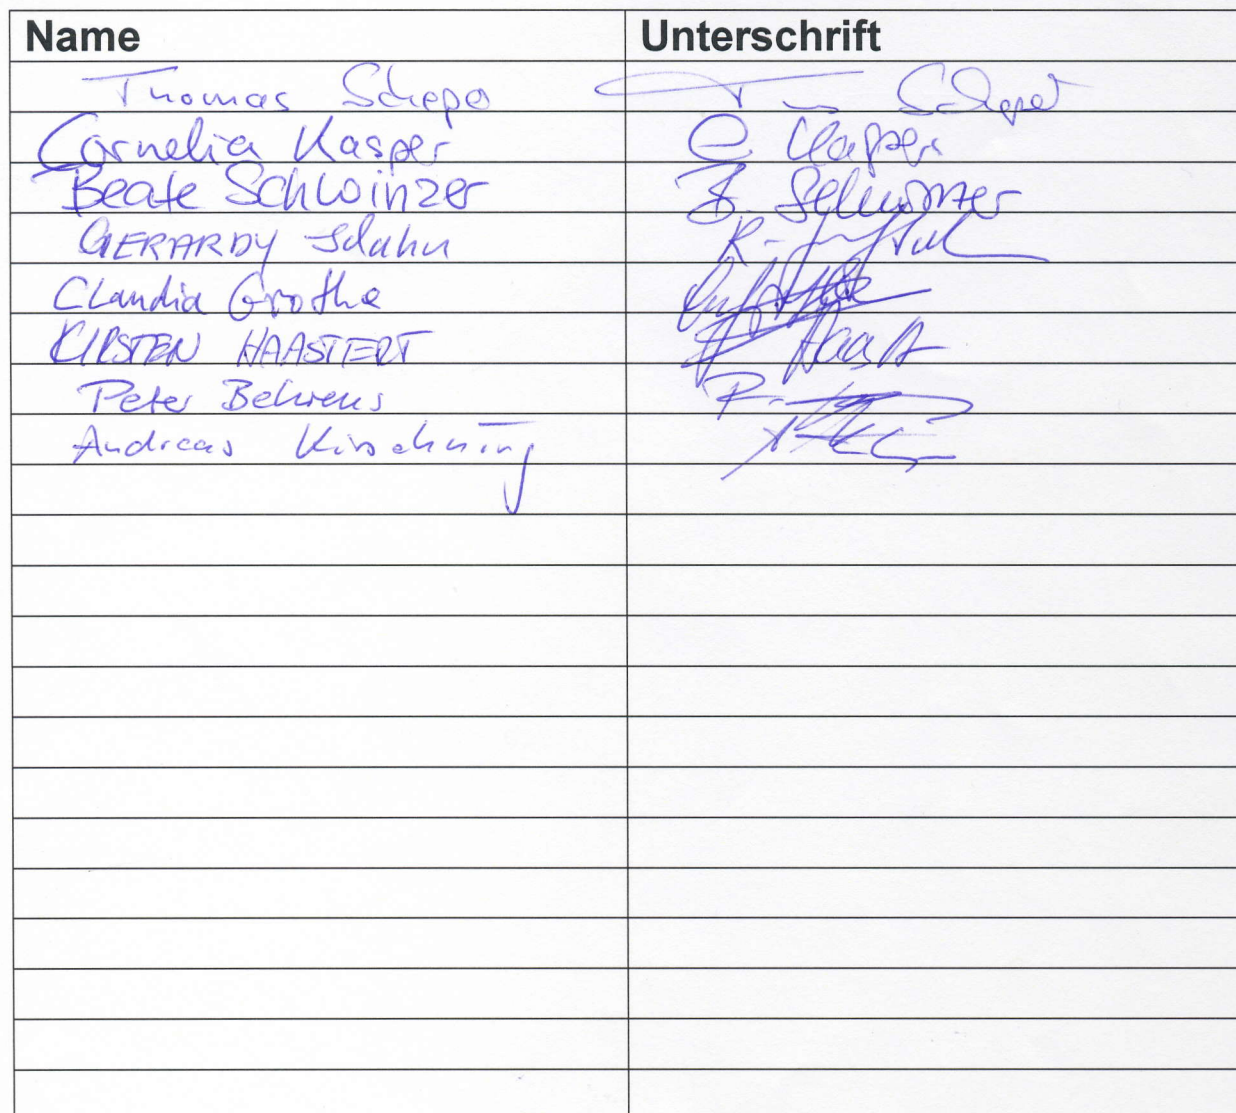 Name Unterschrift
Thomas Scheper T Scheper
Cornelia Kasper C. Kasper
Beate Schwinzer B. Schwinzer
GERARDY Schahn R.
Claudia Grothe
KIRSTEN HAASTERT Haast
Peter Behrens P.
Andreas Kirschning